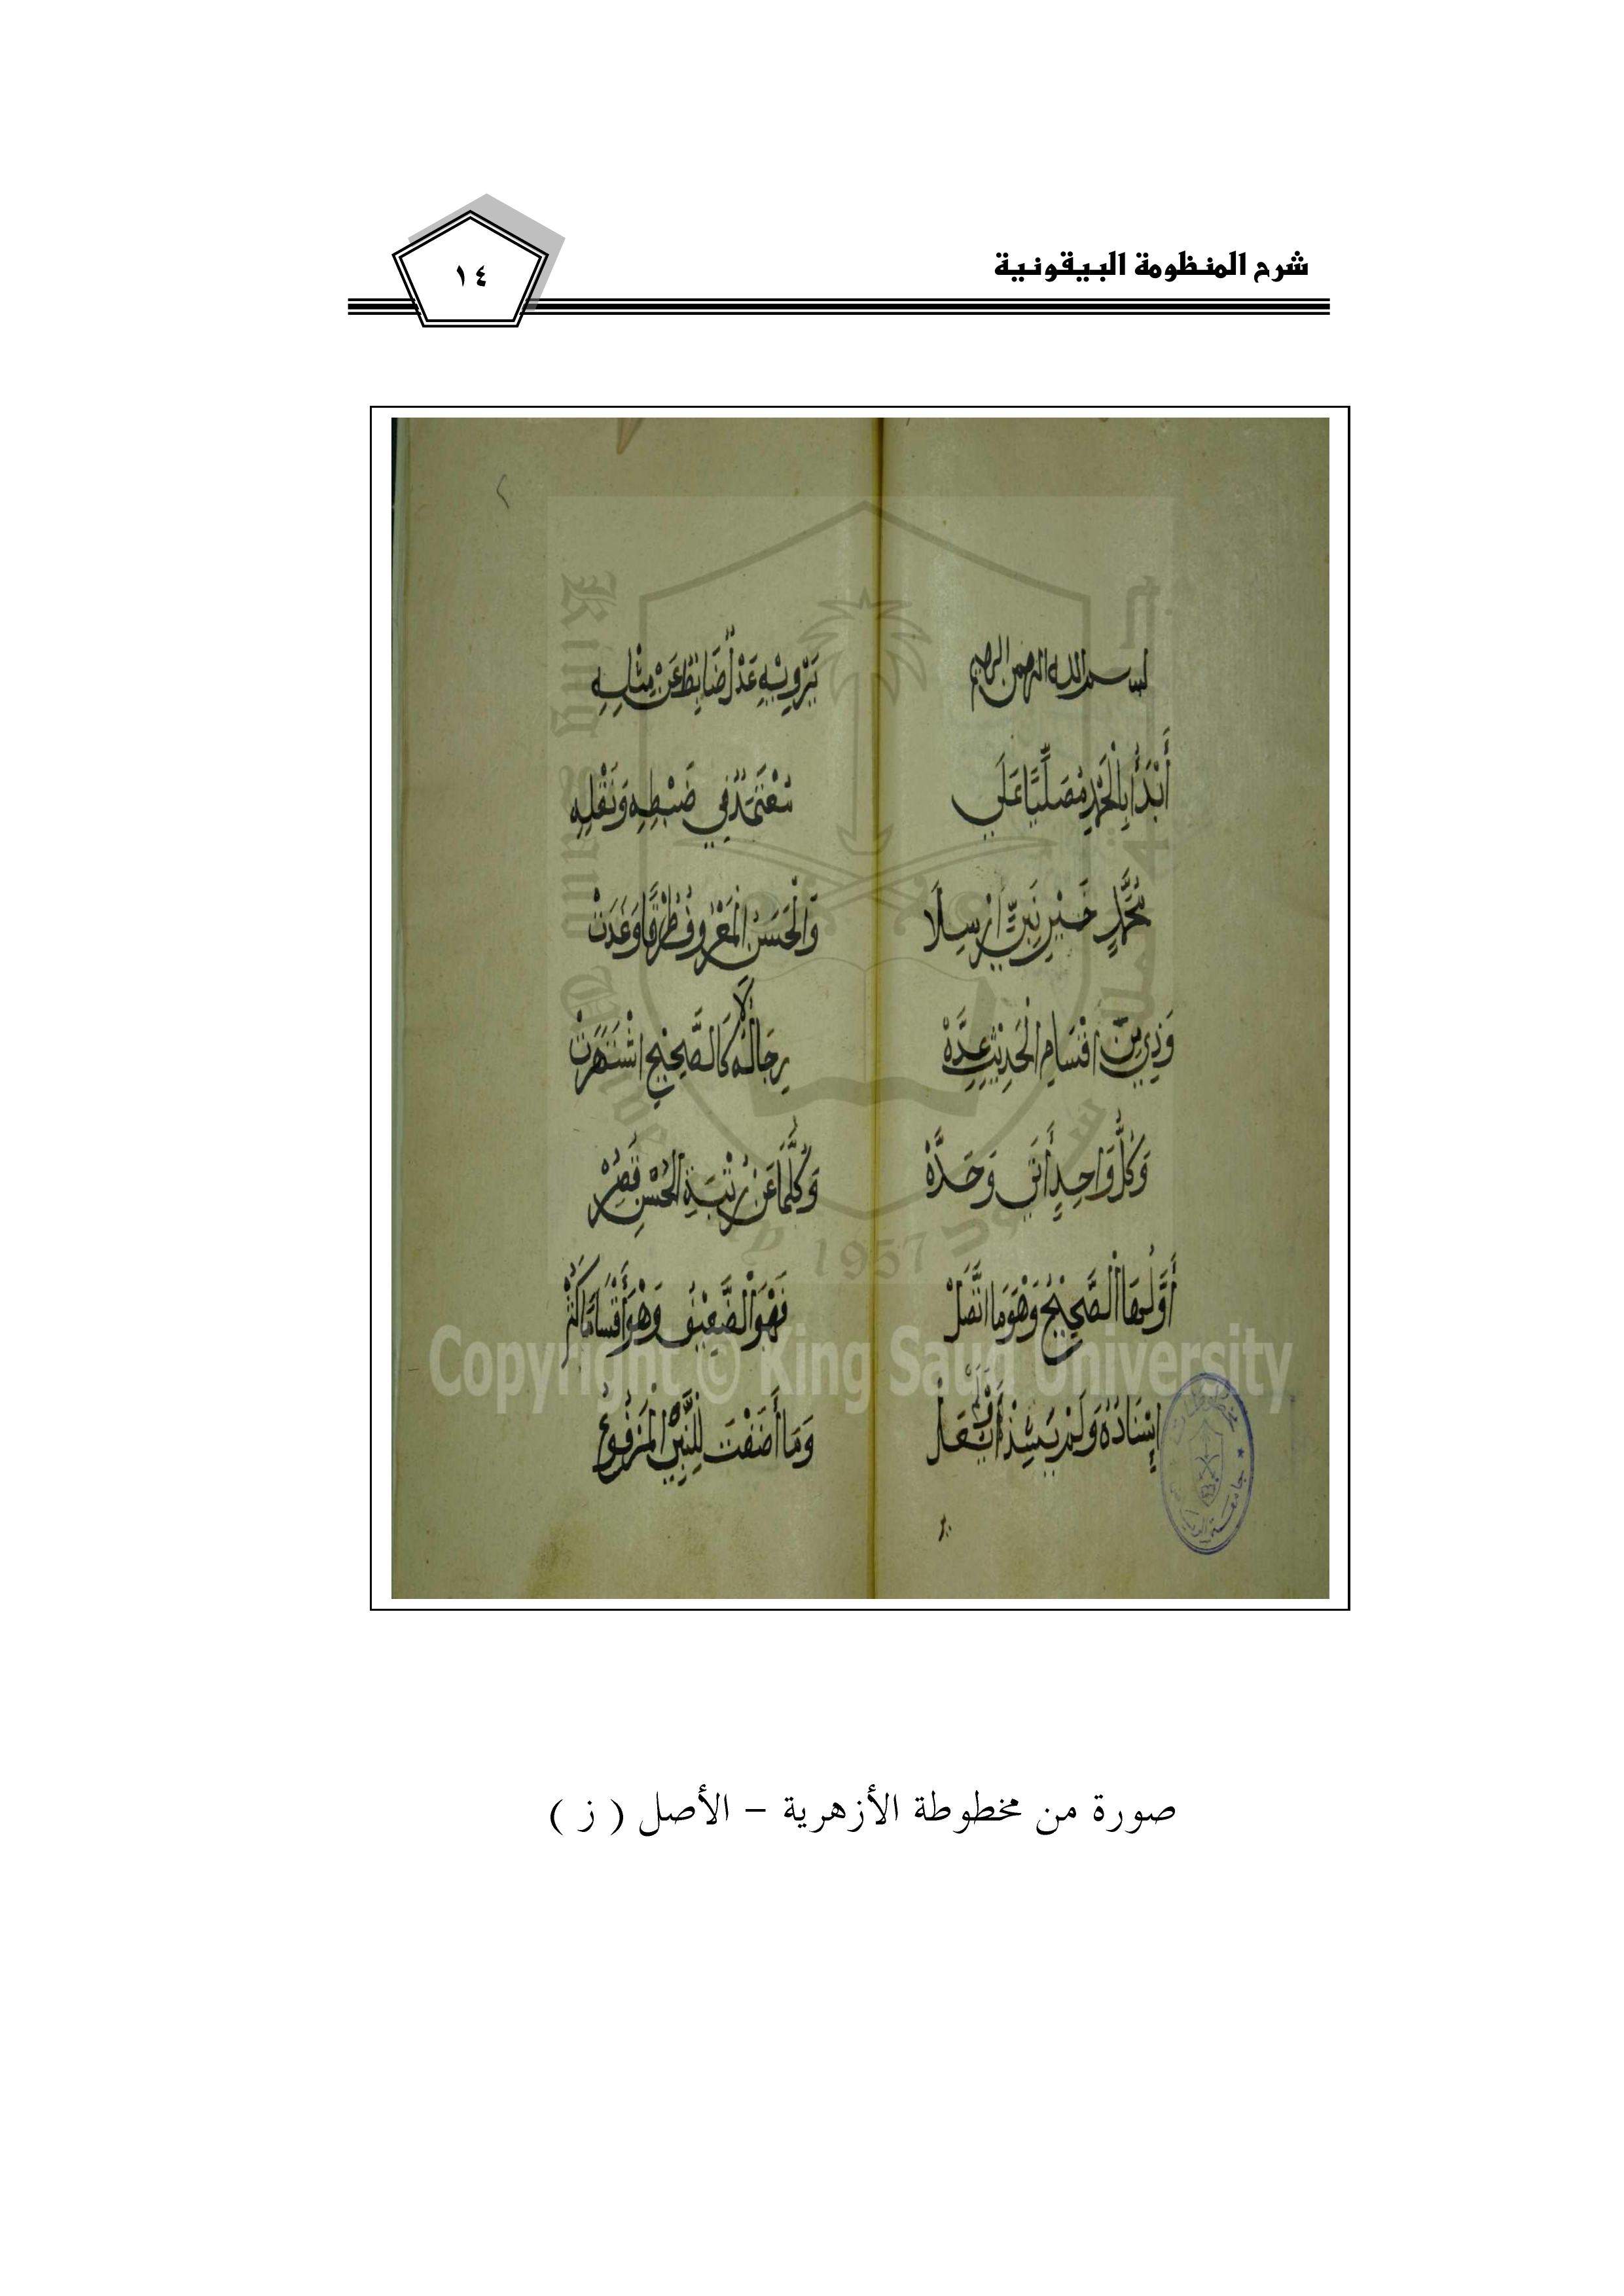 شرح المنظومة البيقونية
١٤
بسم الله الرحمن الرحيم
أَبْدَأُ بِالْحَمْدِ مُصَلِّيًا عَلَى
مُحَمَّدٍ خَيْرِ نَبِيٍّ أُرْسِلَا
وَذِي مِنْ أَقْسَامِ الْحَدِيثِ عِدَّهْ
وَكُلُّ وَاحِدٍ أَتَى وَحَدَّهْ
أَوَّلُهَا الصَّحِيحُ وَهْوَ مَا اتَّصَلْ
إِسْنَادُهُ وَلَمْ يَشُذَّ أَوْ يُعَلْ
يَرْوِيهِ عَدْلٌ ضَابِطٌ عَنْ مِثْلِهِ
مُعْتَمَدٌ فِي ضَبْطِهِ وَنَقْلِهِ
وَالْحَسَنُ الْمَعْرُوفُ طُرْقًا وَغَدَتْ
رِجَالُهُ لَا كَالصَّحِيحِ اشْتَهَرَتْ
وَكُلَّمَا عَنْ رُتْبَةِ الْحُسْنِ قَصُرْ
فَهْوَ الضَّعِيفُ وَهْوَ أَقْسَامًا كَثُرْ
وَمَا أَضَفْتَ لِلنَّبِيِّ الْمَرْفُوعُ
King Saud University
1957
جامعة الملك سعود
Copyright © King Saud University
صورة من مخطوطة الأزهرية – الأصل ( ز )